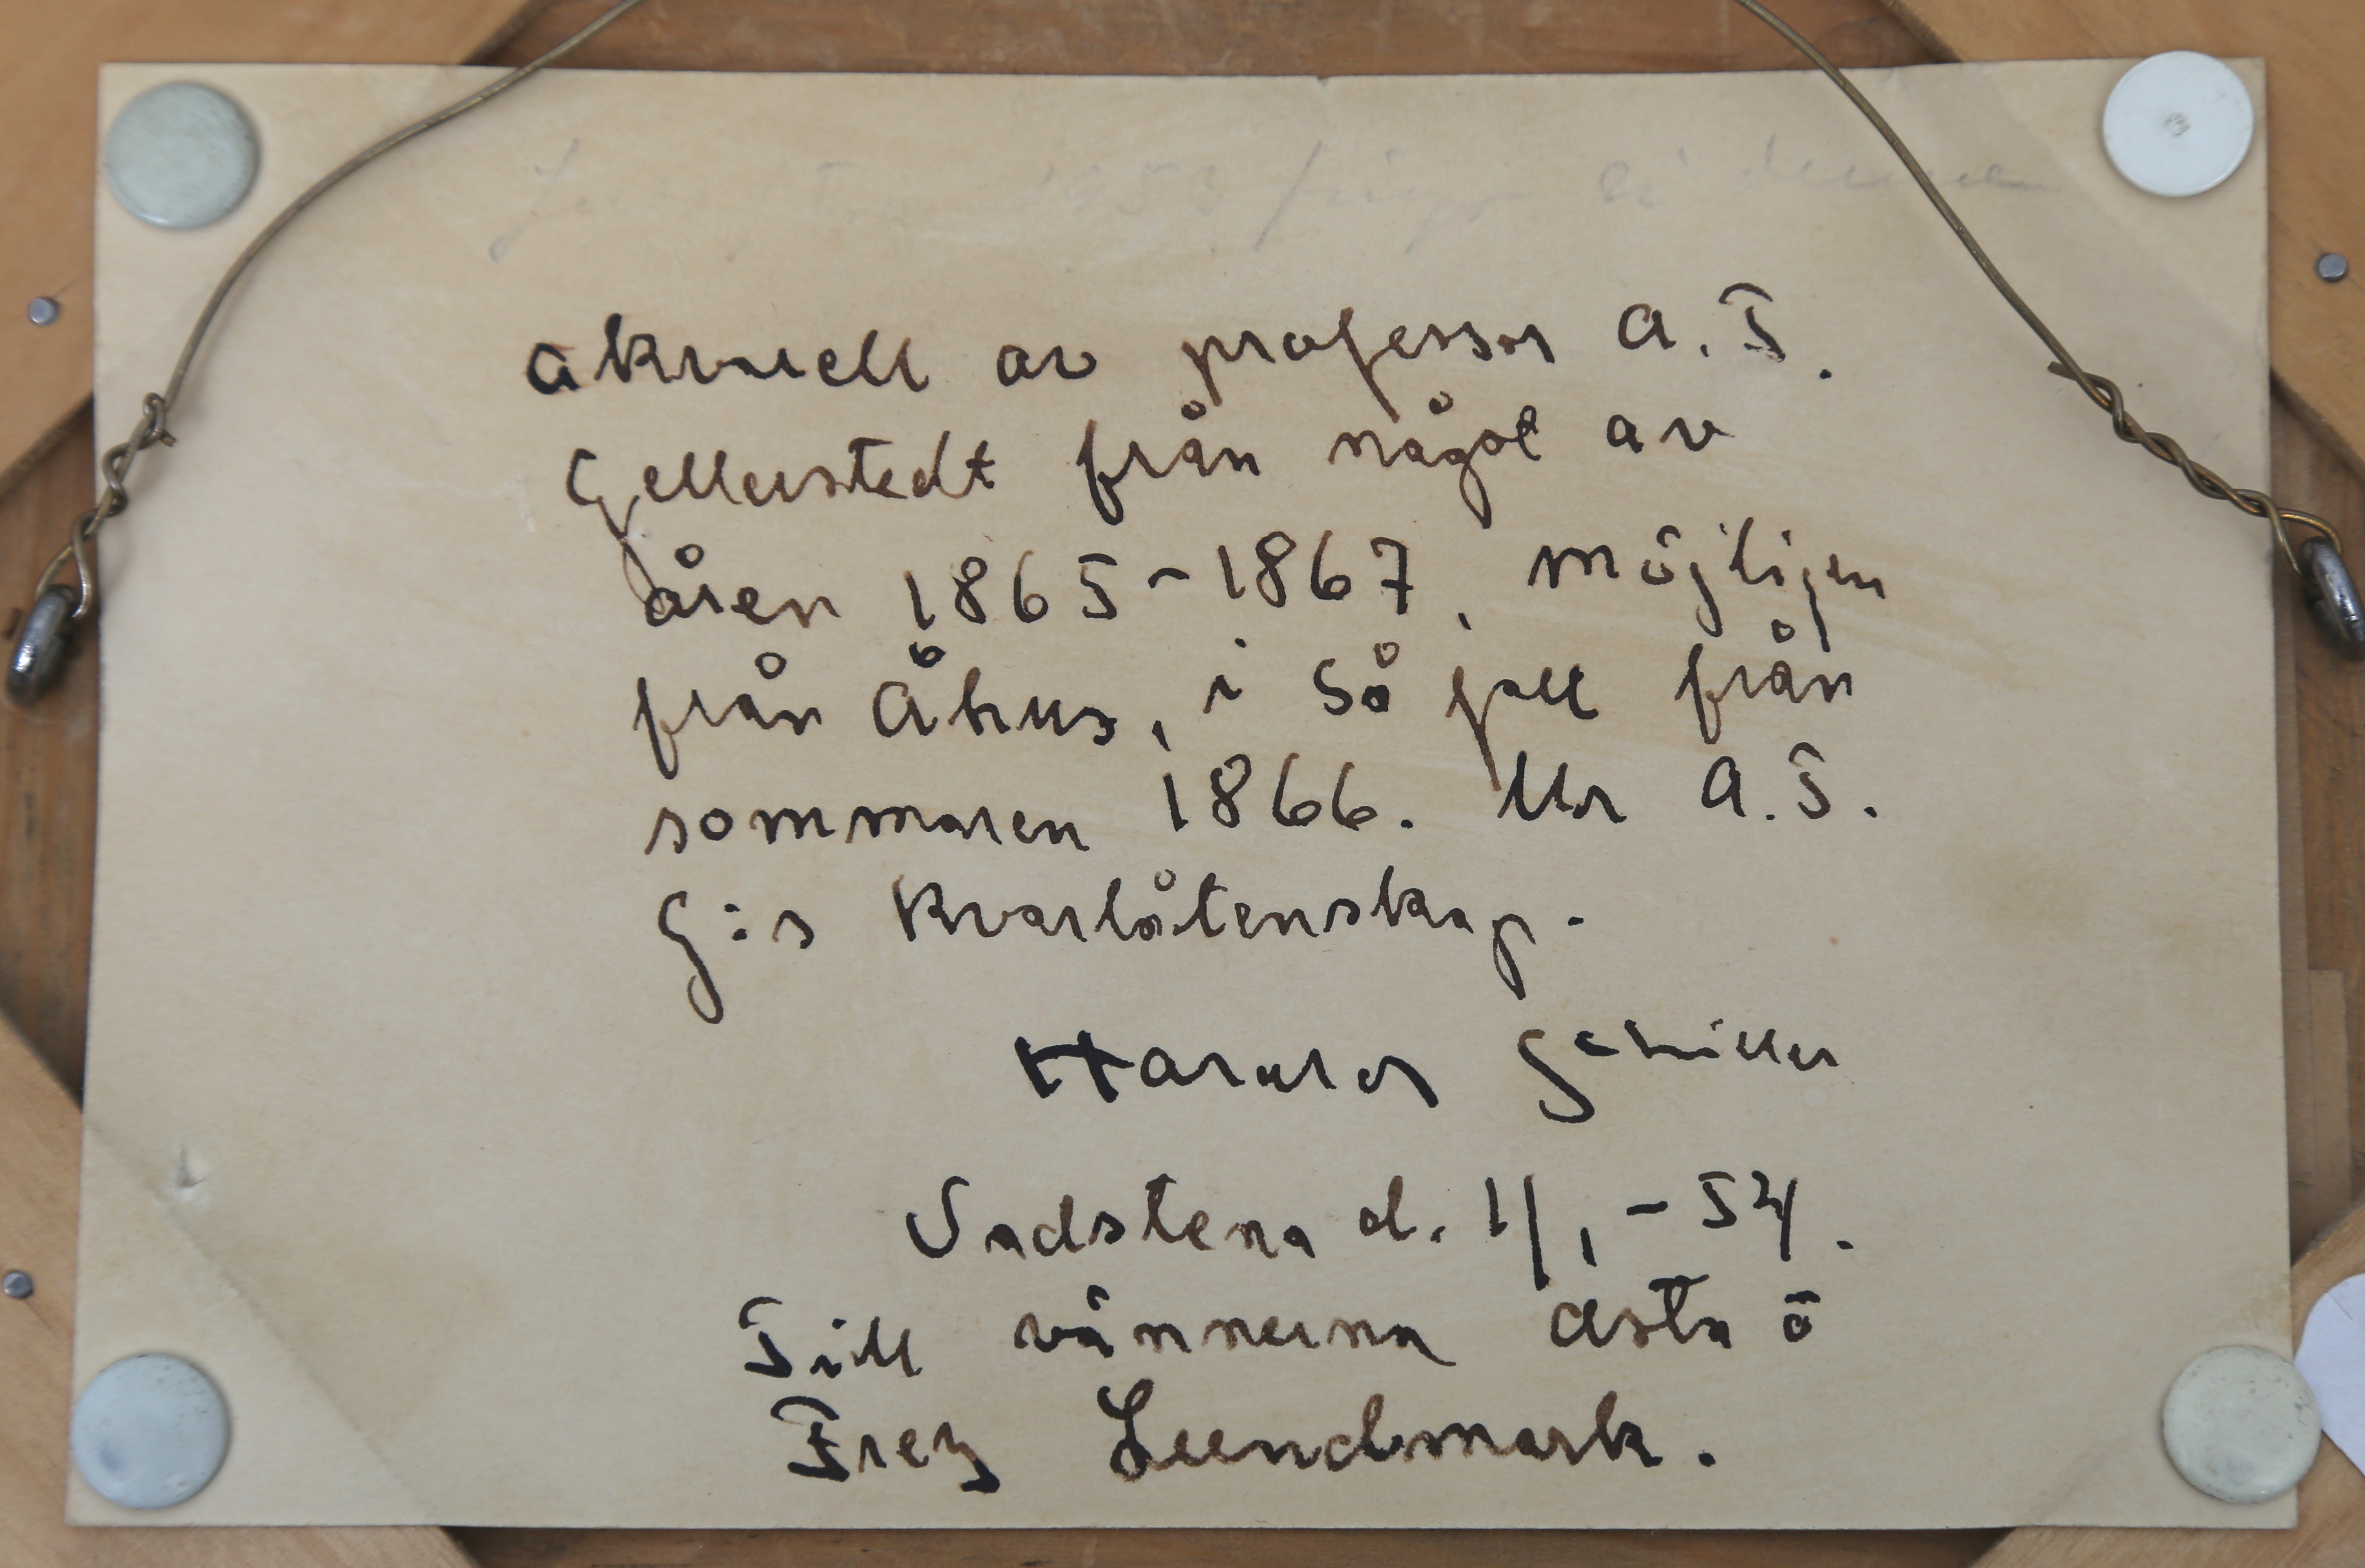 1953
akvarell av professor A. T.
Gellerstedt från något av
åren 1865-1867, möjligen
från Åhus, i så fall från
sommaren 1866. Ur A. T.
G:s kvarlåtenskap.
Harald Schiller
Vadstena d. 1/1 - 54.
Till vännerna Asta o
Frez Lundmark.